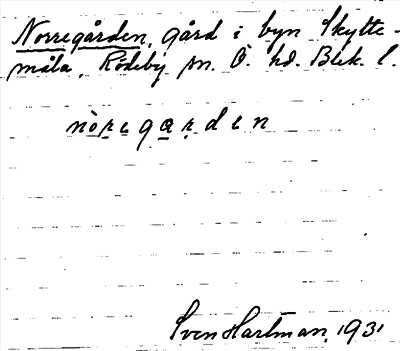 Norregården, gård i byn Skytte-
måla, Rödeby sn. Ö. hd. Blek. l.
nòregarden
Sven Hartman, 1931